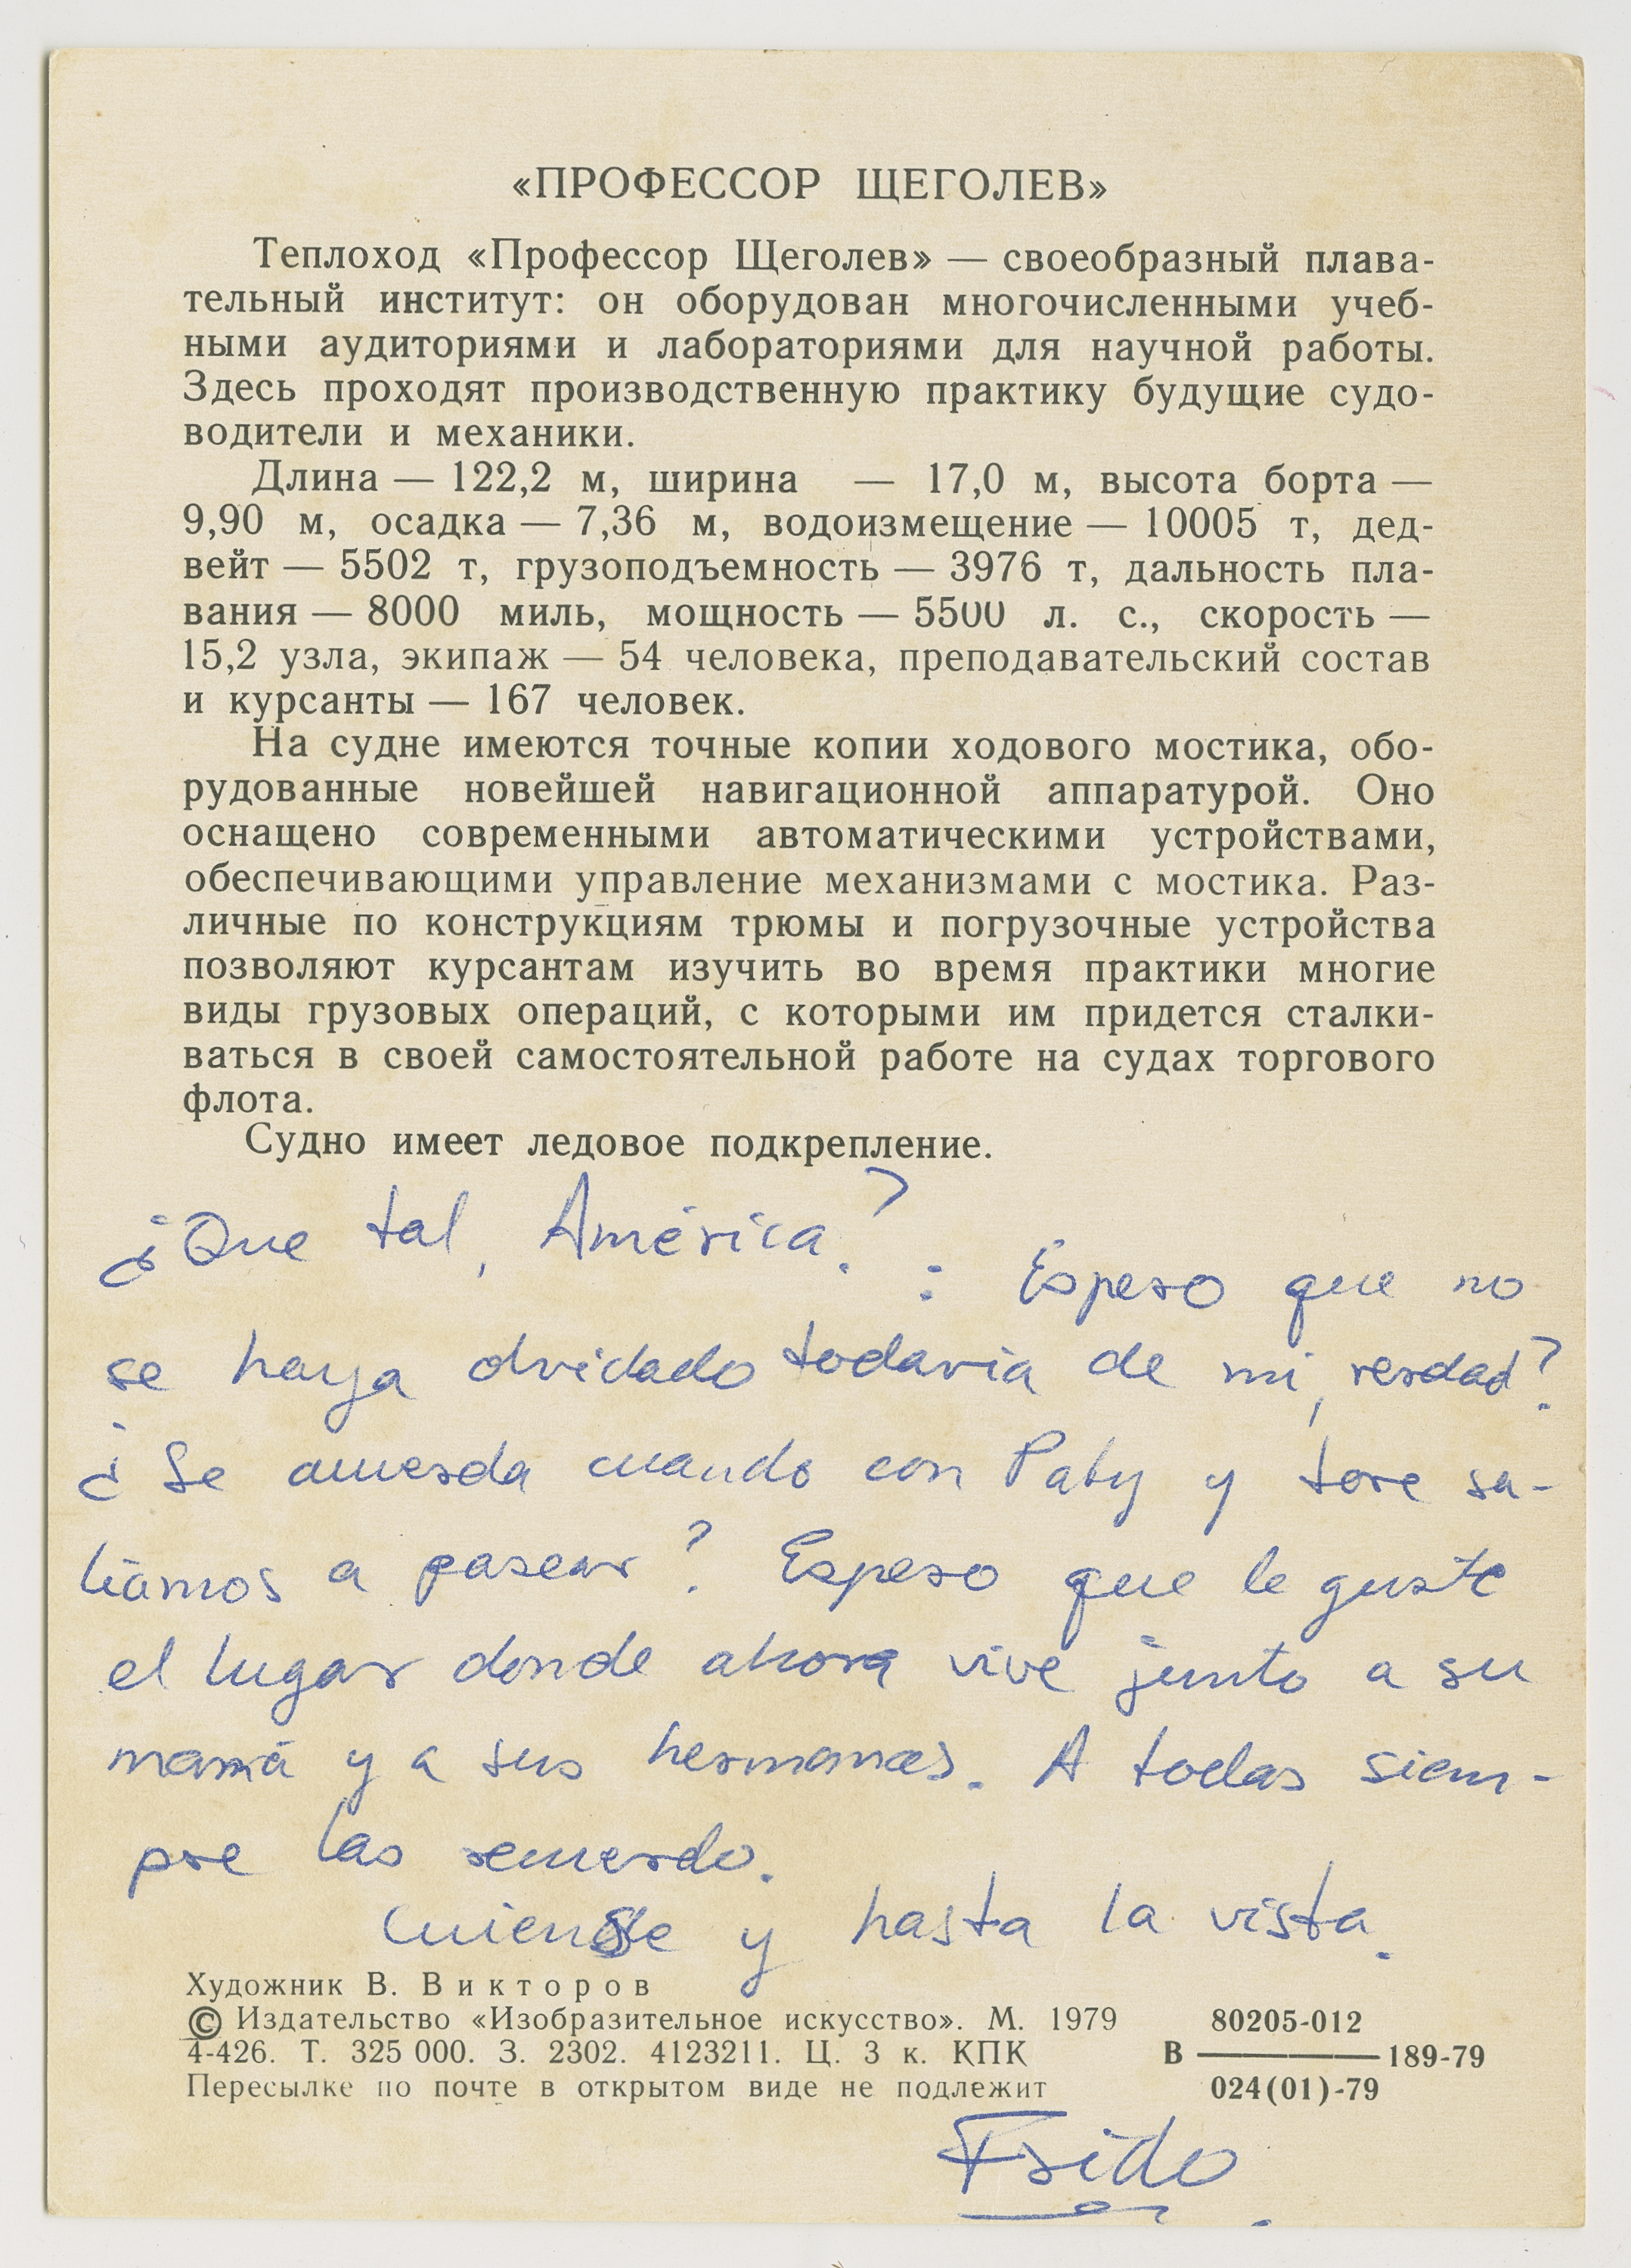 «ПРОФЕССОР ЩЕГОЛЕВ»
Теплоход «Профессор Щеголев» — своеобразный плава-
тельный институт: он оборудован многочисленными учеб-
ными аудиториями и лабораториями для научной работы.
Здесь проходят производственную практику будущие судо-
водители и механики.
Длина — 122,2 м, ширина — 17,0 м, высота борта —
9,90 м, осадка — 7,36 м, водоизмещение — 10005 т, дед-
вейт — 5502 т, грузоподъемность — 3976 т, дальность пла-
вания — 8000 миль, мощность — 5500 л. с., скорость —
15,2 узла, экипаж — 54 человека, преподавательский состав
и курсанты — 167 человек.
На судне имеются точные копии ходового мостика, обо-
рудованные новейшей навигационной аппаратурой. Оно
оснащено современными автоматическими устройствами,
обеспечивающими управление механизмами с мостика. Раз-
личные по конструкциям трюмы и погрузочные устройства
позволяют курсантам изучить во время практики многие
виды грузовых операций, с которыми им придется сталки-
ваться в своей самостоятельной работе на судах торгового
флота.
Судно имеет ледовое подкрепление.
¿Que tal, América? : Espero que no
se haya olvidado todavia de mi, verdad?
¿Se acuerda cuando con Paty y tore sa-
liamos a pasear? Espero que le guste
el lugar donde ahora vive junto a su
mamá y a sus hermanas. A todas siem-
pre las recuerdo.
Cuiense y hasta la vista.
Художник В. Викторов
© Издательство «Изобразительное искусство». М. 1979
4-426. Т. 325 000. З. 2302. 4123211. Ц. 3 к. КПК
Пересылке по почте в открытом виде не подлежит
80205-012
В ———— 189-79
024(01)-79
Frido